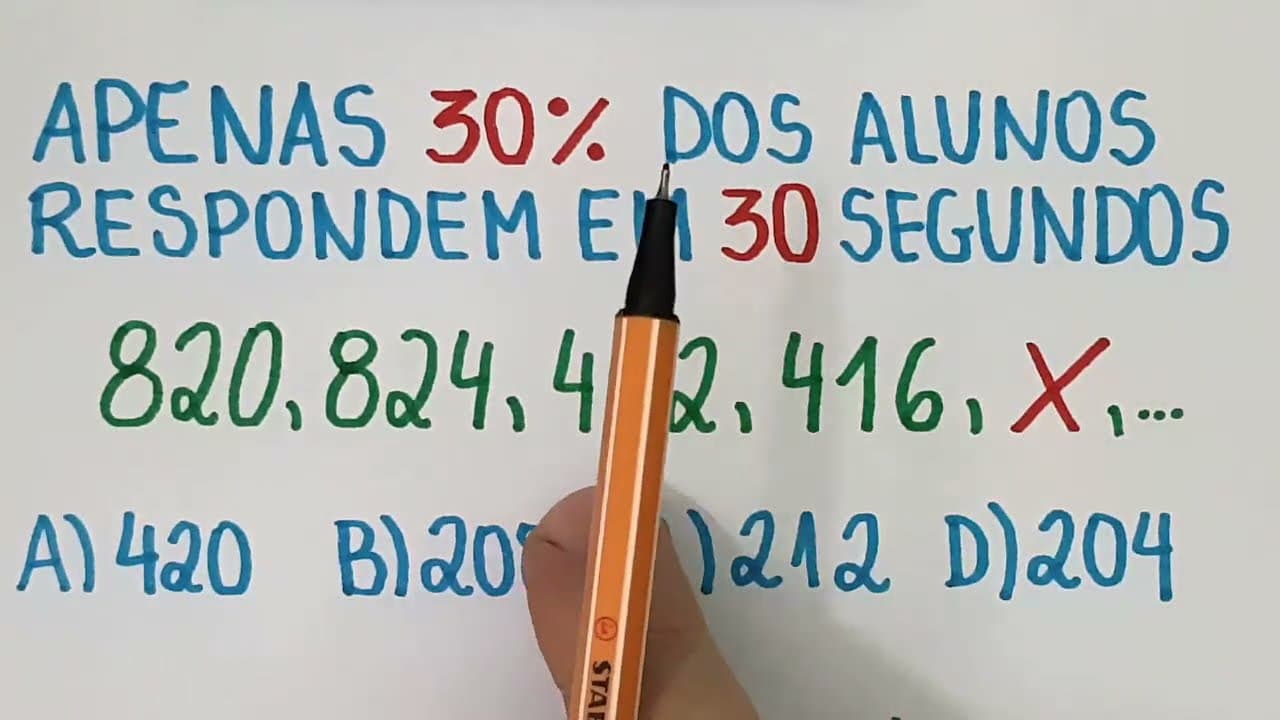 APENAS 30% DOS ALUNOS
RESPONDEM EM 30 SEGUNDOS
820, 824, 416, X, ...
A) 420 D) 204
) 212